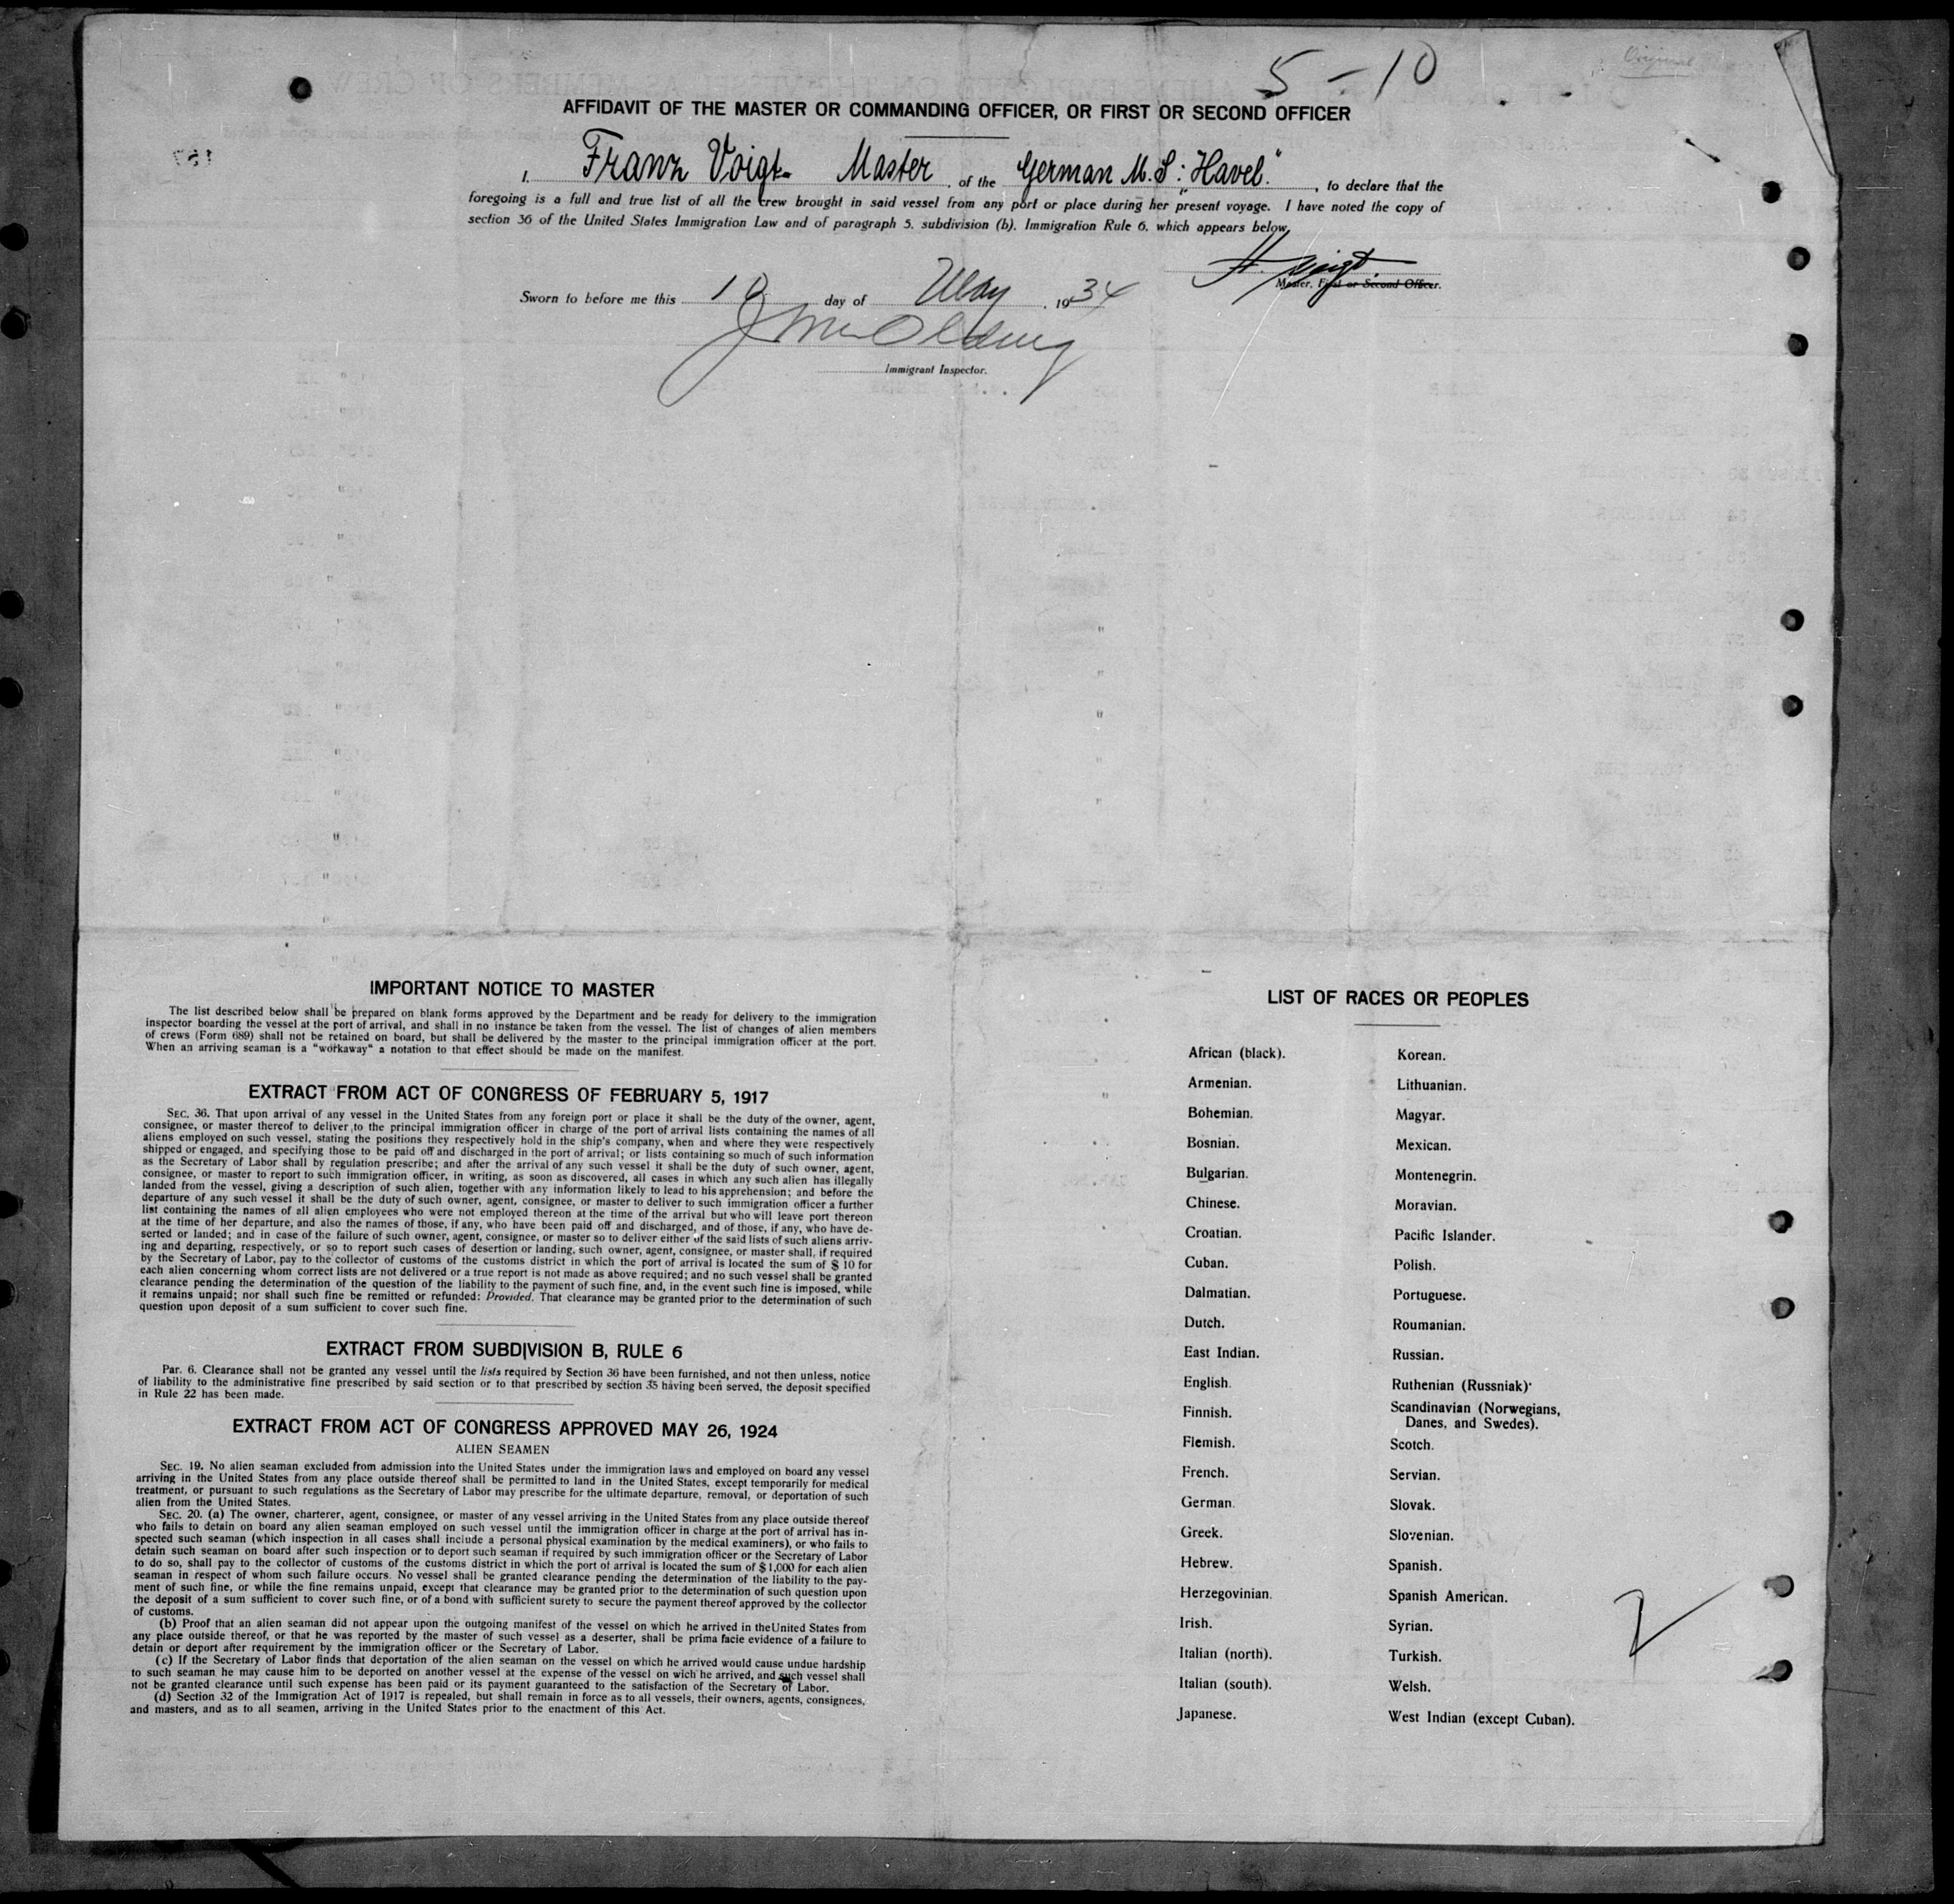 Original
5-10
AFFIDAVIT OF THE MASTER OR COMMANDING OFFICER, OR FIRST OR SECOND OFFICER
I, Franz Voigt Master, of the German M.S. "Havel", to declare that the
foregoing is a full and true list of all the crew brought in said vessel from any port or place during her present voyage. I have noted the copy of
section 36 of the United States Immigration Law and of paragraph 5, subdivision (b), Immigration Rule 6, which appears below.
Voigt
Master, First or Second Officer.
Sworn to before me this 10 day of May, 1934
Immigrant Inspector.
IMPORTANT NOTICE TO MASTER
The list described below shall be prepared on blank forms approved by the Department and be ready for delivery to the immigration
inspector boarding the vessel at the port of arrival, and shall in no instance be taken from the vessel. The list of changes of alien members
of crews (Form 689) shall not be retained on board, but shall be delivered by the master to the principal immigration officer at the port.
When an arriving seaman is a "workaway" a notation to that effect should be made on the manifest.
EXTRACT FROM ACT OF CONGRESS OF FEBRUARY 5, 1917
SEC. 36. That upon arrival of any vessel in the United States from any foreign port or place it shall be the duty of the owner, agent,
consignee, or master thereof to deliver to the principal immigration officer in charge of the port of arrival lists containing the names of all
aliens employed on such vessel, stating the positions they respectively hold in the ship's company, when and where they were respectively
shipped or engaged, and specifying those to be paid off and discharged in the port of arrival; or lists containing so much of such information
as the Secretary of Labor shall by regulation prescribe; and after the arrival of any such vessel it shall be the duty of such owner, agent,
consignee, or master to report to such immigration officer, in writing, as soon as discovered, all cases in which any such alien has illegally
landed from the vessel, giving a description of such alien, together with any information likely to lead to his apprehension; and before the
departure of any such vessel it shall be the duty of such owner, agent, consignee, or master to deliver to such immigration officer a further
list containing the names of all alien employees who were not employed thereon at the time of the arrival but who will leave port thereon
at the time of her departure, and also the names of those, if any, who have been paid off and discharged, and of those, if any, who have de-
serted or landed; and in case of the failure of such owner, agent, consignee, or master so to deliver either of the said lists of such aliens arriv-
ing and departing, respectively, or so to report such cases of desertion or landing, such owner, agent, consignee, or master shall, if required
by the Secretary of Labor, pay to the collector of customs of the customs district in which the port of arrival is located the sum of $ 10 for
each alien concerning whom correct lists are not delivered or a true report is not made as above required; and no such vessel shall be granted
clearance pending the determination of the question of the liability to the payment of such fine, and, in the event such fine is imposed, while
it remains unpaid; nor shall such fine be remitted or refunded: Provided, That clearance may be granted prior to the determination of such
question upon deposit of a sum sufficient to cover such fine.
EXTRACT FROM SUBDIVISION B, RULE 6
Par. 6. Clearance shall not be granted any vessel until the lists required by Section 36 have been furnished, and not then unless, notice
of liability to the administrative fine prescribed by said section or to that prescribed by section 35 having been served, the deposit specified
in Rule 22 has been made.
EXTRACT FROM ACT OF CONGRESS APPROVED MAY 26, 1924
ALIEN SEAMEN
SEC. 19. No alien seaman excluded from admission into the United States under the immigration laws and employed on board any vessel
arriving in the United States from any place outside thereof shall be permitted to land in the United States, except temporarily for medical
treatment, or pursuant to such regulations as the Secretary of Labor may prescribe for the ultimate departure, removal, or deportation of such
alien from the United States.
SEC. 20. (a) The owner, charterer, agent, consignee, or master of any vessel arriving in the United States from any place outside thereof
who fails to detain on board any alien seaman employed on such vessel until the immigration officer in charge at the port of arrival has in-
spected such seaman (which inspection in all cases shall include a personal physical examination by the medical examiners), or who fails to
detain such seaman on board after such inspection or to deport such seaman if required by such immigration officer or the Secretary of Labor
to do so, shall pay to the collector of customs of the customs district in which the port of arrival is located the sum of $1,000 for each alien
seaman in respect of whom such failure occurs. No vessel shall be granted clearance pending the determination of the liability to the pay-
ment of such fine, or while the fine remains unpaid, except that clearance may be granted prior to the determination of such question upon
the deposit of a sum sufficient to cover such fine, or of a bond with sufficient surety to secure the payment thereof approved by the collector
of customs.
(b) Proof that an alien seaman did not appear upon the outgoing manifest of the vessel on which he arrived in theUnited States from
any place outside thereof, or that he was reported by the master of such vessel as a deserter, shall be prima facie evidence of a failure to
detain or deport after requirement by the immigration officer or the Secretary of Labor.
(c) If the Secretary of Labor finds that deportation of the alien seaman on the vessel on which he arrived would cause undue hardship
to such seaman he may cause him to be deported on another vessel at the expense of the vessel on wich he arrived, and such vessel shall
not be granted clearance until such expense has been paid or its payment guaranteed to the satisfaction of the Secretary of Labor.
(d) Section 32 of the Immigration Act of 1917 is repealed, but shall remain in force as to all vessels, their owners, agents, consignees,
and masters, and as to all seamen, arriving in the United States prior to the enactment of this Act.
LIST OF RACES OR PEOPLES
African (black).
Armenian.
Bohemian.
Bosnian.
Bulgarian.
Chinese.
Croatian.
Cuban.
Dalmatian.
Dutch.
East Indian.
English.
Finnish.
Flemish.
French.
German.
Greek.
Hebrew.
Herzegovinian.
Irish.
Italian (north).
Italian (south).
Japanese.
Korean.
Lithuanian.
Magyar.
Mexican.
Montenegrin.
Moravian.
Pacific Islander.
Polish.
Portuguese.
Roumanian.
Russian.
Ruthenian (Russniak).
Scandinavian (Norwegians,
Danes, and Swedes).
Scotch.
Servian.
Slovak.
Slovenian.
Spanish.
Spanish American.
Syrian.
Turkish.
Welsh.
West Indian (except Cuban).
2